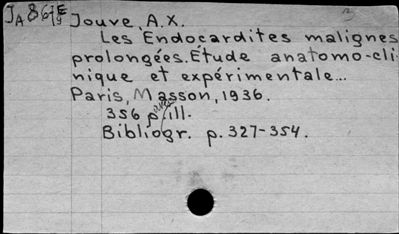 Jouve, A.X.
Les Endocardites malignes
prolongées. Étude anatomo-cli-
nique et expérimentale...
Paris, Masson, 1936.
356 p. ill.
Bibliogr. p. 327-354.